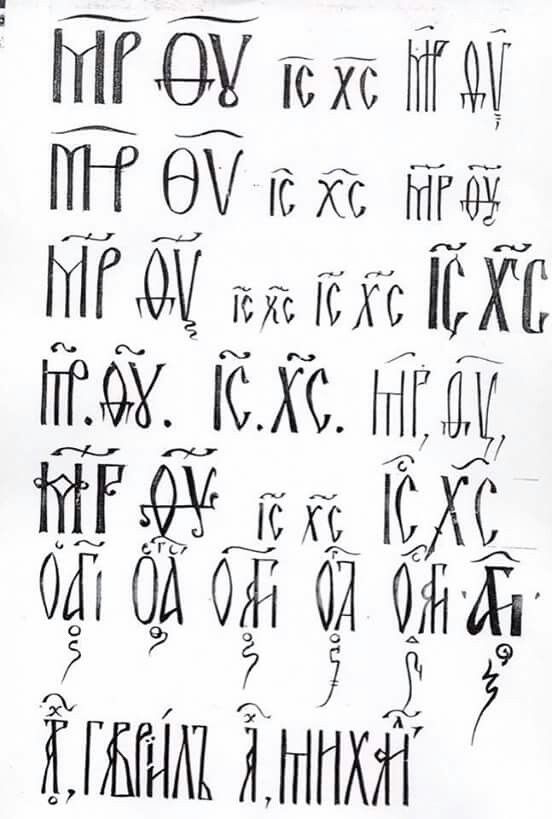 М҃Р Ѳ҃У І҃С Х҃С М҃Р Ѳ҃У
М҃Р Ѳ҃V І҃С Х҃С М҃Р Ѳ҃У
М҃Р Ѳ҃У І҃С Х҃С І҃С Х҃С І҃С Х҃С
М҃Р. Ѳ҃У. І҃С. Х҃С. М҃Р, Ѳ҃У,
М҃Р Ѳ҃У І҃С Х҃С І҃С Х҃С
О А҃ГІ
А҃Х, ГАВРІИЛЪ А҃Х, МИХАИЛ